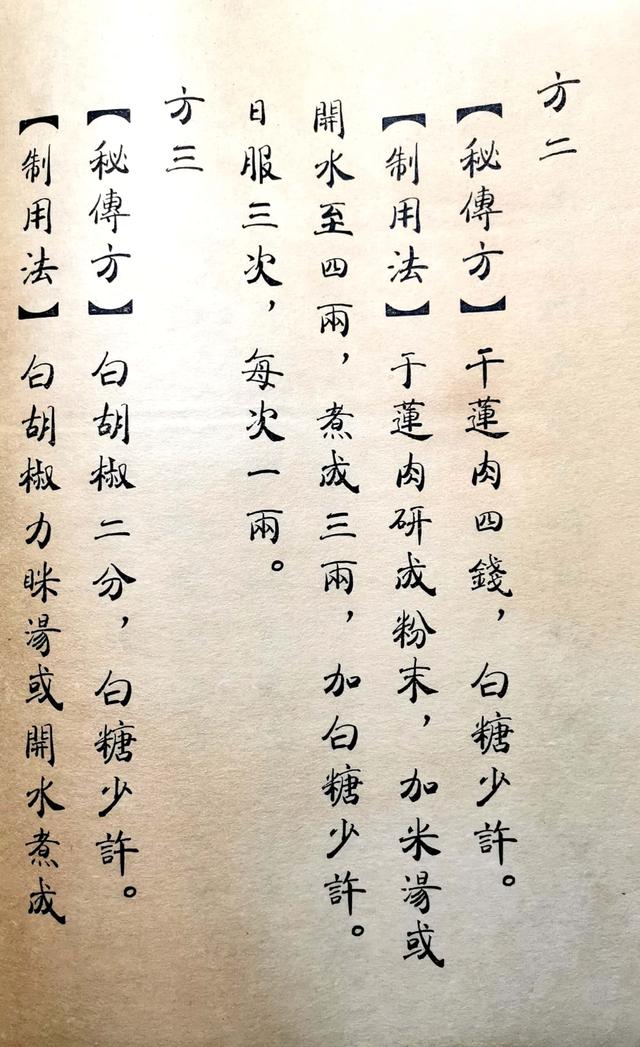 方二
【秘傳方】干蓮肉四錢，白糖少許。
【制用法】于蓮肉研成粉末，加米湯或
開水至四兩，煮成三兩，加白糖少許。
日服三次，每次一兩。
方三
【秘傳方】白胡椒二分，白糖少許。
【制用法】白胡椒力眯湯或開水煮成